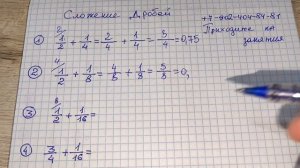 Сложение дробей
+7-902-404-84-81
Приходите на
занятия
① 1/2 + 1/4 = 2/4 + 1/4 = 3/4 = 0,75
② 1/2 + 1/8 = 4/8 + 1/8 = 5/8 = 0,
③ 1/2 + 1/16 =
④ 3/4 + 1/16 =